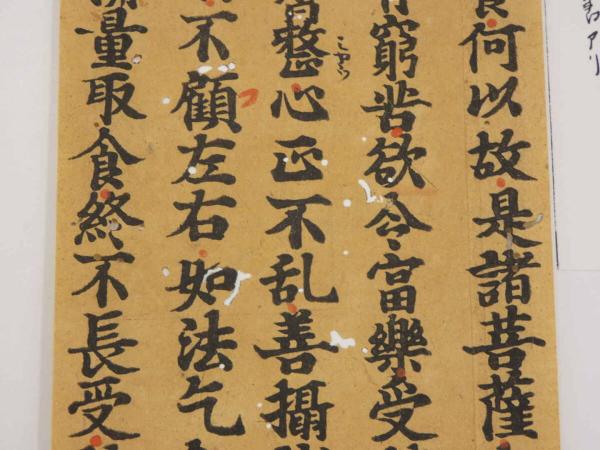 何以故是諸菩薩
窮苦欲令富樂受
整心正不乱善攝
不顧左右如法乞
量取食終不長受
アリ